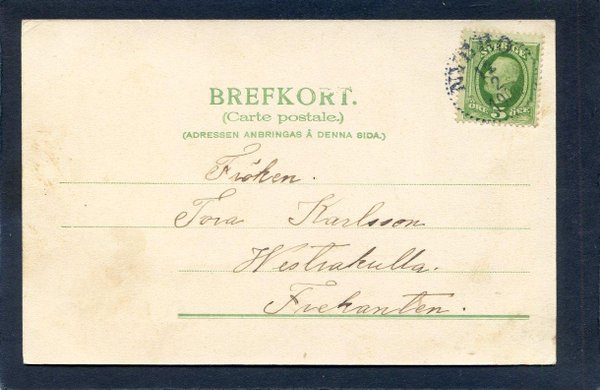 NYBRO
SVERIGE
5
ÖRE ÖRE
BREFKORT.
(Carte postale.)
(ADRESSEN ANBRINGAS Å DENNA SIDA.)
Fröken.
Tora Karlsson
Westrakulla.
Trekanten.